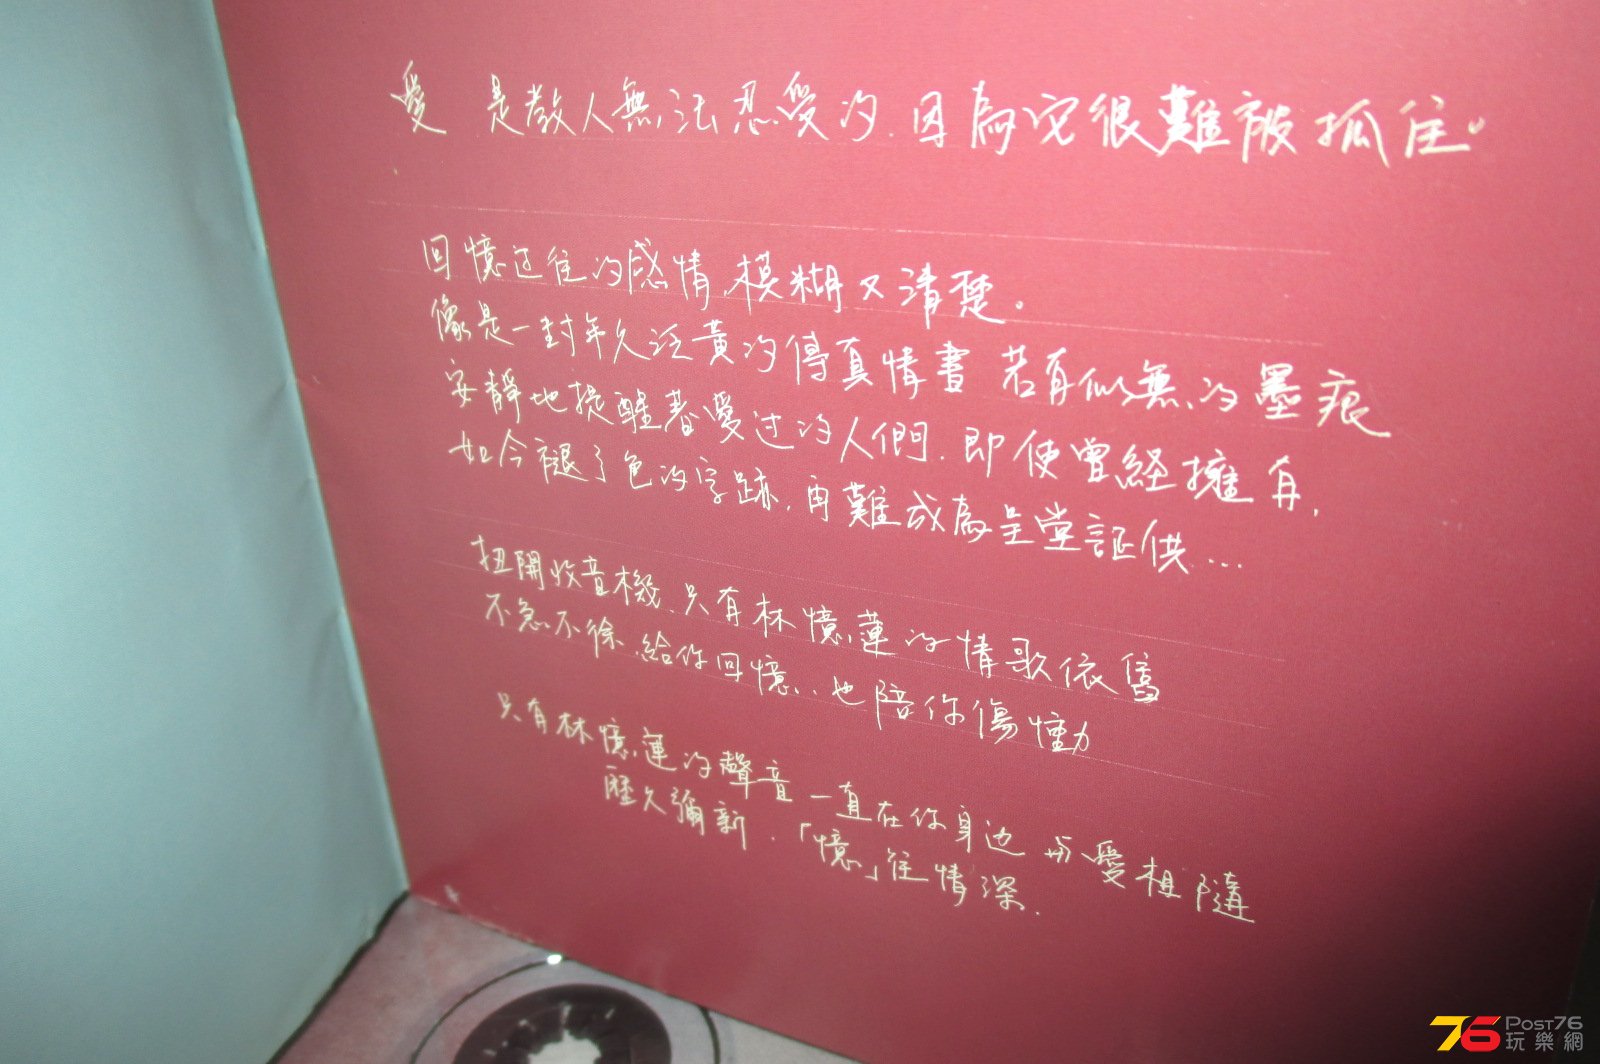 愛 是教人無法忍受的.因為它很難被抓住。
回憶过往的感情,模糊又清楚。
像是一封年久泛黃的傳真情書 若有似無的墨痕
安靜地提醒着愛过的人們.即使曾経擁有,
如今褪了色的字跡,再難成為呈堂証供...
扭開收音機.只有林憶蓮的情歌依舊
不急不徐.給你回憶..也陪你傷慟
只有林憶蓮的聲音一直在你身边 与愛相隨
歷久彌新.「憶」往情深.
76 Post76
玩樂網